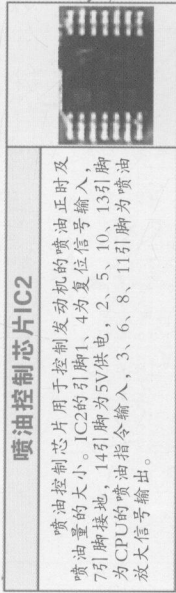 喷油控制芯片IC2
喷油控制芯片用于控制发动机的喷油正时及
喷油量的大小。IC2的引脚1、4为复位信号输入,
7引脚接地,14引脚为5V供电,2、5、10、13引脚
为CPU的喷油指令输入,3、6、8、11引脚为喷油
放大信号输出。